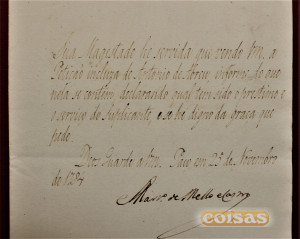 Sua Magestade he servida que vendo Vm. a
Petição incluza de Antonio de Abreu, informe do que
nela se contém declarando qual tem sido o prestimo e
o serviço do suplicante, e se ha digno da Graça que
pede.
Deos Guarde a Vm. Paço em 23 de Novembro
de 1784
Mart.º de Mello e Castro
coisas